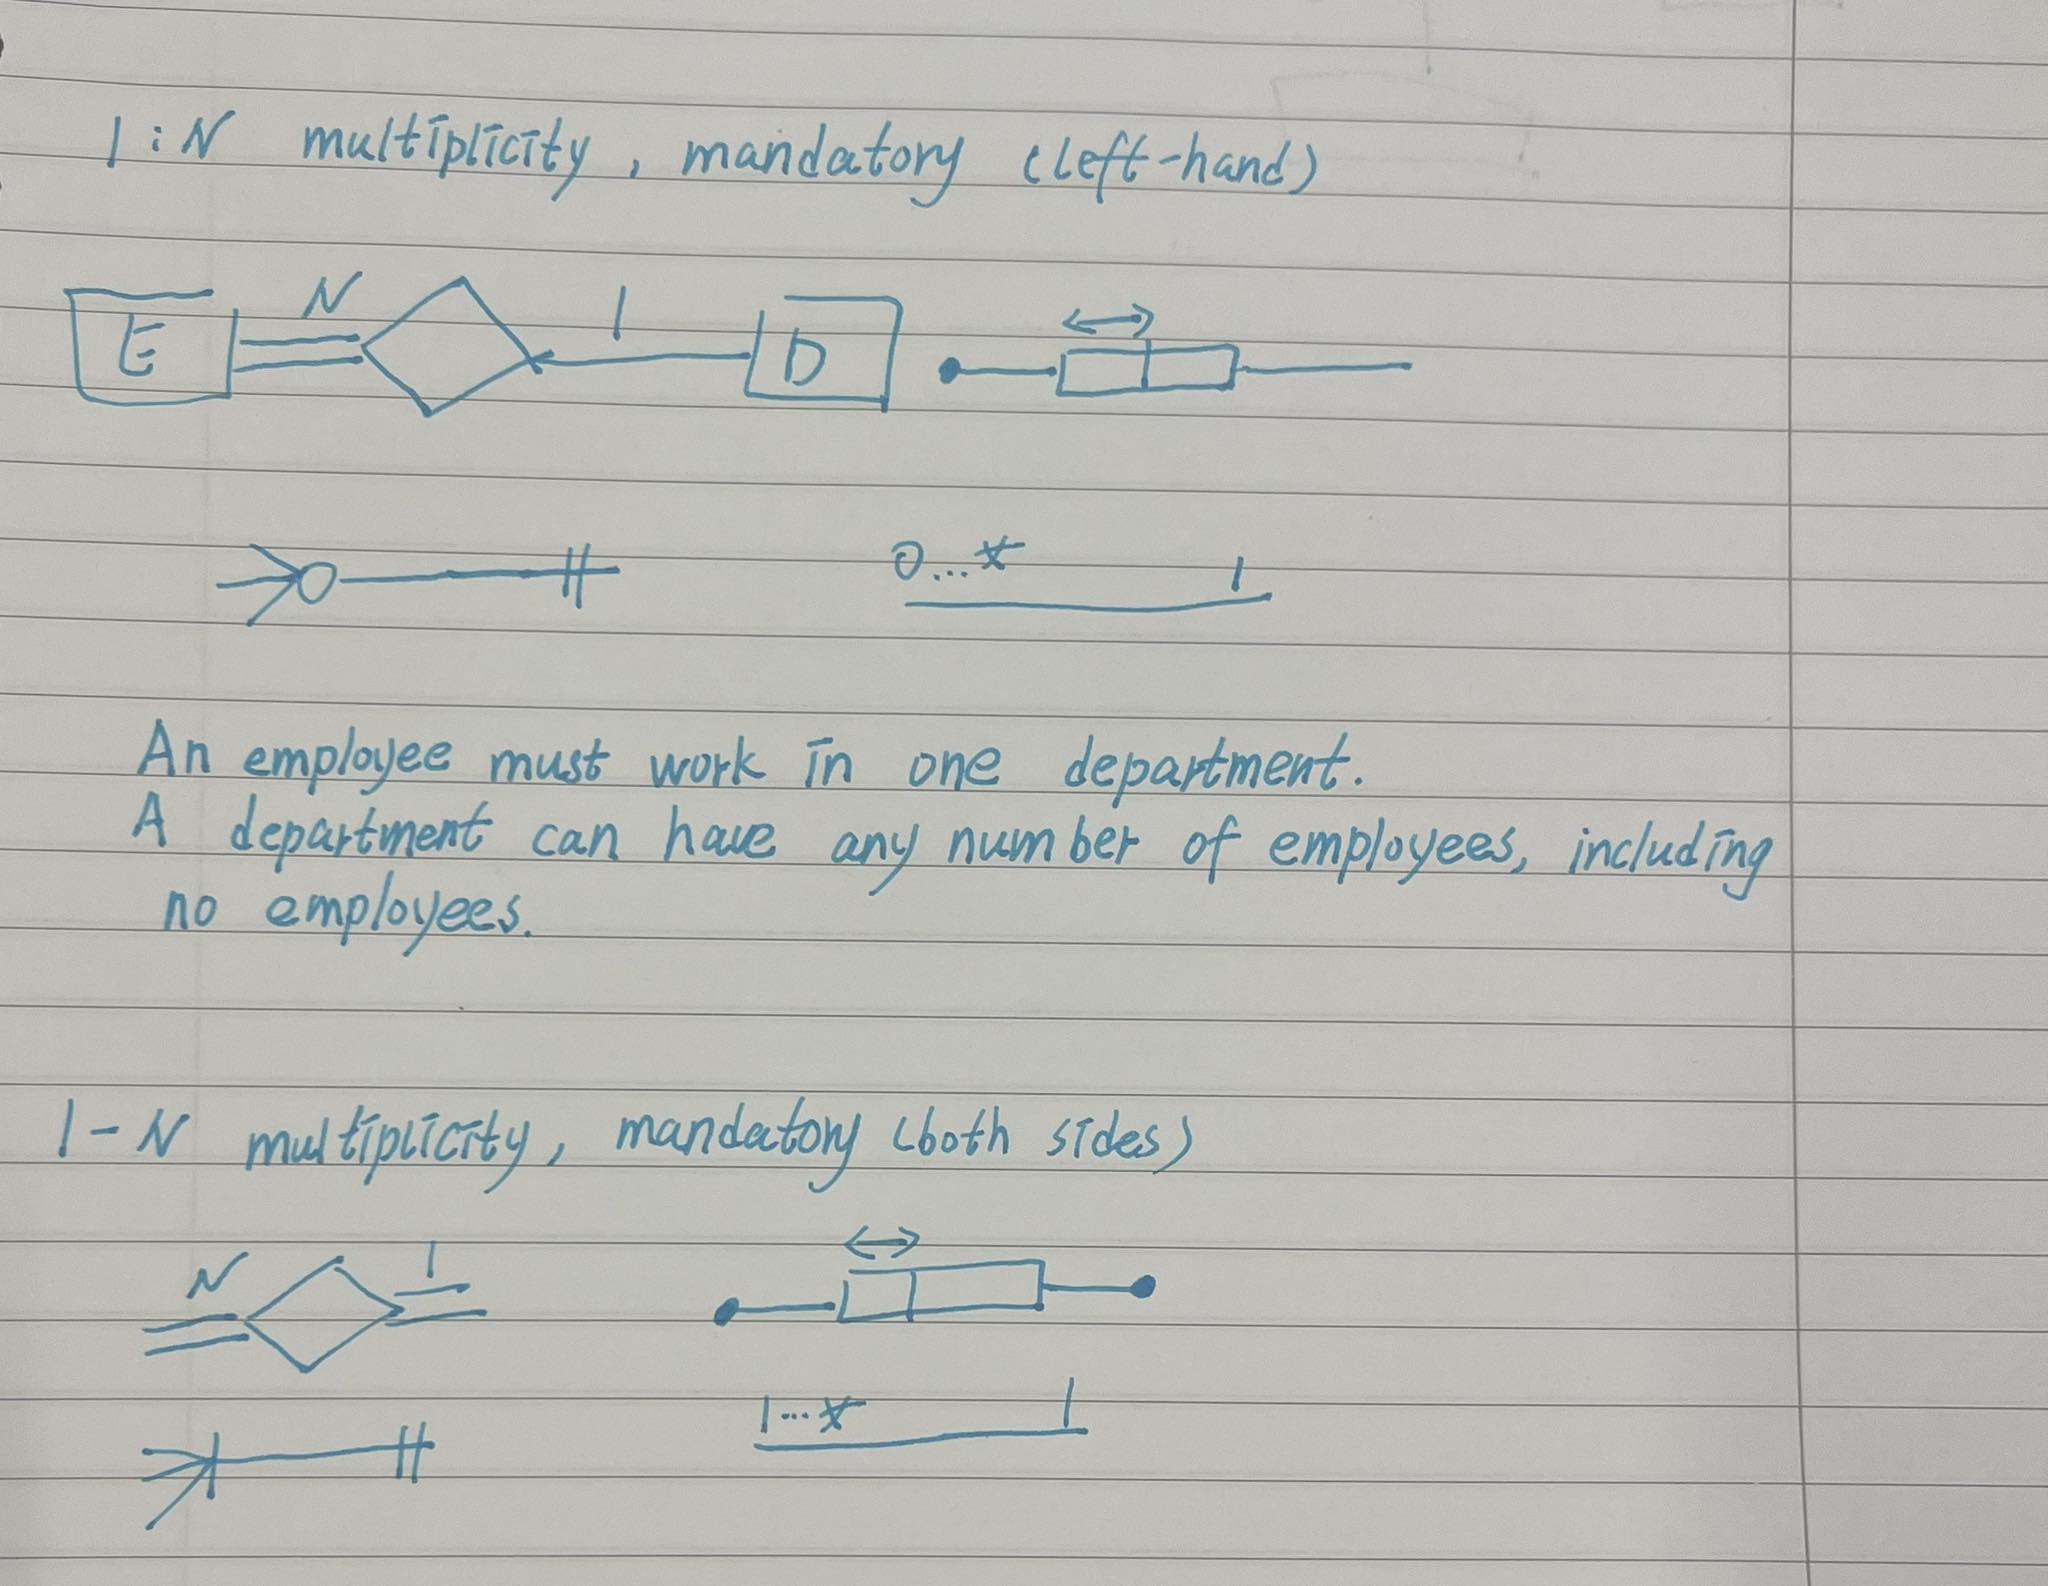 1:N multiplicity, mandatory (left-hand)
E N 1 D
0...* 1
An employee must work in one department.
A department can have any number of employees, including
no employees.
1-N multiplicity, mandatory (both sides)
N 1
1...* 1